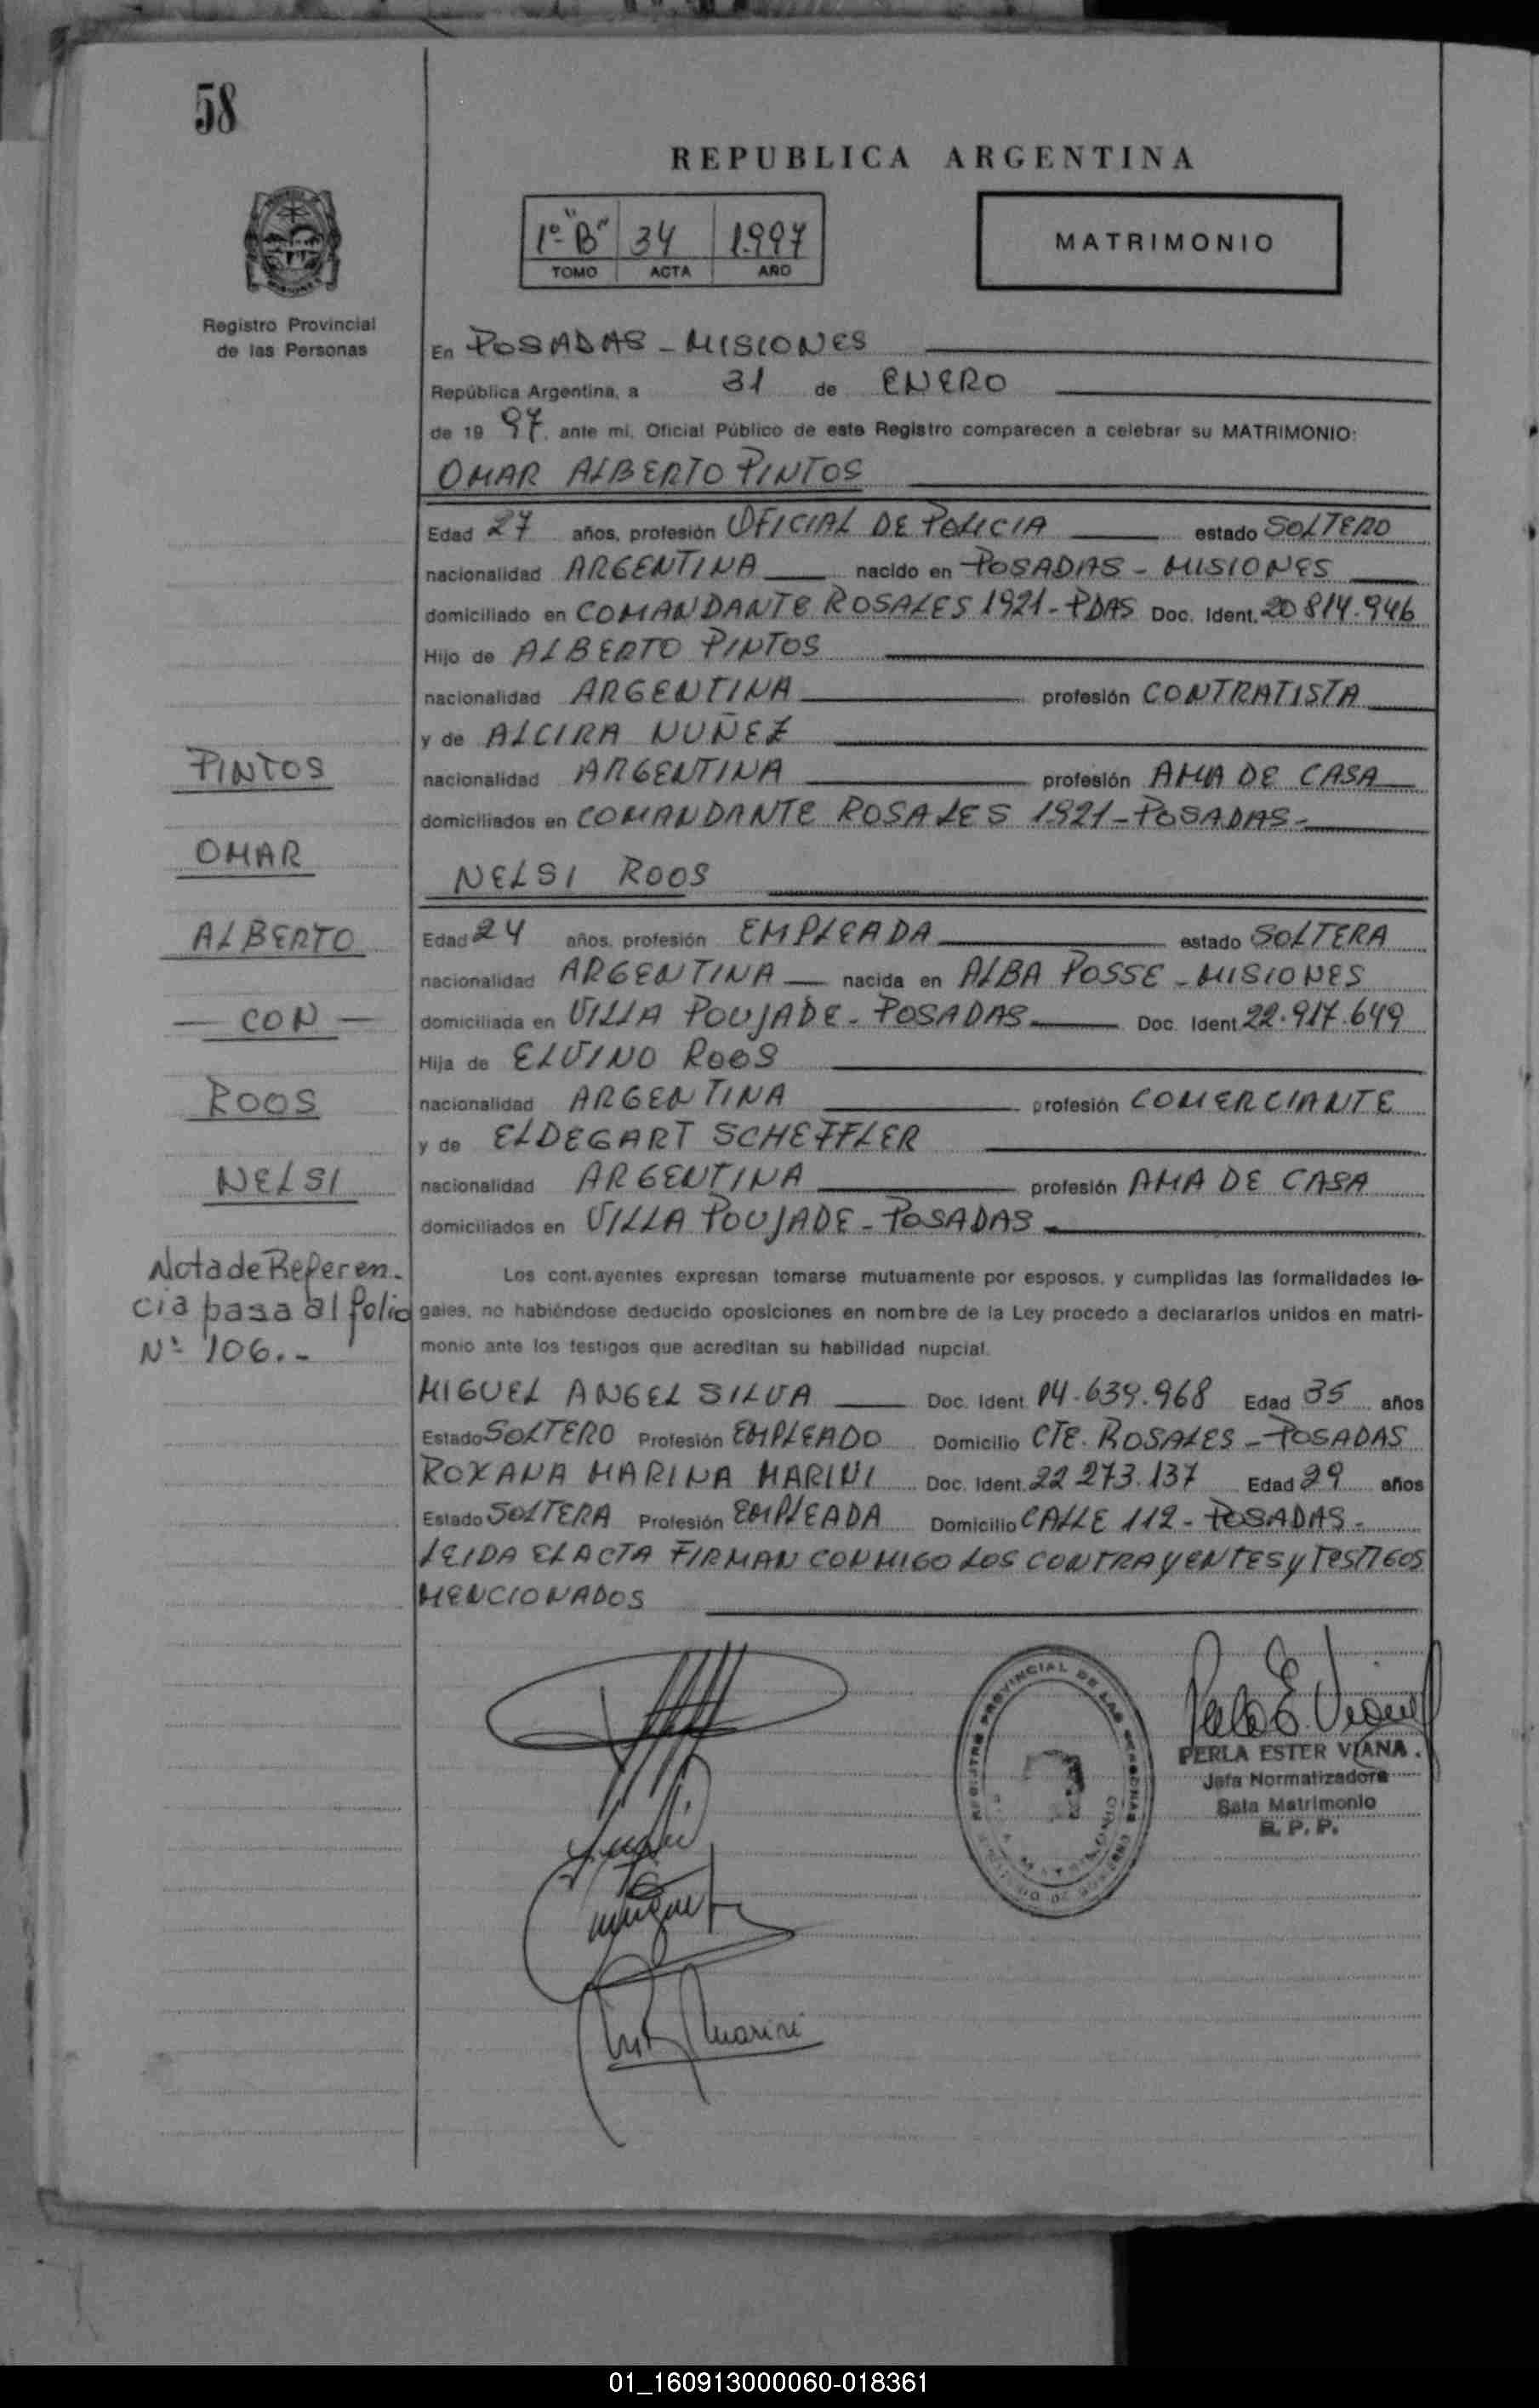 58
REPUBLICA ARGENTINA
1º "B" 34 1997
TOMO ACTA AÑO
MATRIMONIO
Registro Provincial
de las Personas
En POSADAS - MISIONES
República Argentina, a 31 de ENERO
de 19 97. ante mi, Oficial Público de este Registro comparecen a celebrar su MATRIMONIO:
OMAR ALBERTO PINTOS
Edad 27 años, profesión OFICIAL DE POLICIA estado SOLTERO
nacionalidad ARGENTINA nacido en POSADAS - MISIONES
domiciliado en COMANDANTE ROSALES 1921 - PDAS Doc. Ident. 20 814.946
Hijo de ALBERTO PINTOS
nacionalidad ARGENTINA profesión CONTRATISTA
y de ALCIRA NUÑEZ
nacionalidad ARGENTINA profesión AMA DE CASA
domiciliados en COMANDANTE ROSALES 1921 - POSADAS -
NELSI ROOS
Edad 24 años, profesión EMPLEADA estado SOLTERA
nacionalidad ARGENTINA nacida en ALBA POSSE - MISIONES
domiciliada en VILLA POUJADE - POSADAS Doc. Ident 22.917.649
Hija de ELVINO ROOS
nacionalidad ARGENTINA profesión COMERCIANTE
y de ELDEGART SCHEFFLER
nacionalidad ARGENTINA profesión AMA DE CASA
domiciliados en VILLA POUJADE - POSADAS
Los cont.ayentes expresan tomarse mutuamente por esposos, y cumplidas las formalidades le-
gales, no habiéndose deducido oposiciones en nombre de la Ley procedo a declararlos unidos en matri-
monio ante los testigos que acreditan su habilidad nupcial.
MIGUEL ANGEL SILVA Doc. Ident. 14.639.968 Edad 35 años
Estado SOLTERO Profesión EMPLEADO Domicilio CTE. ROSALES - POSADAS
ROXANA MARINA MARINI Doc. Ident. 22 273.137 Edad 29 años
Estado SOLTERA Profesión EMPLEADA Domicilio CALLE 112 - POSADAS -
LEIDA EL ACTA FIRMAN CONMIGO LOS CONTRAYENTES y TESTIGOS
MENCIONADOS
PINTOS
OMAR
ALBERTO
- CON -
ROOS
NELSI
Nota de Referen-
cia pasa al folio
Nº 106.-
REGISTRO PROVINCIAL DE LAS PERSONAS
PERLA ESTER VIANA.
Jefa Normatizadora
Sala Matrimonio
R. P. P.
Marini
01_160913000060-018361